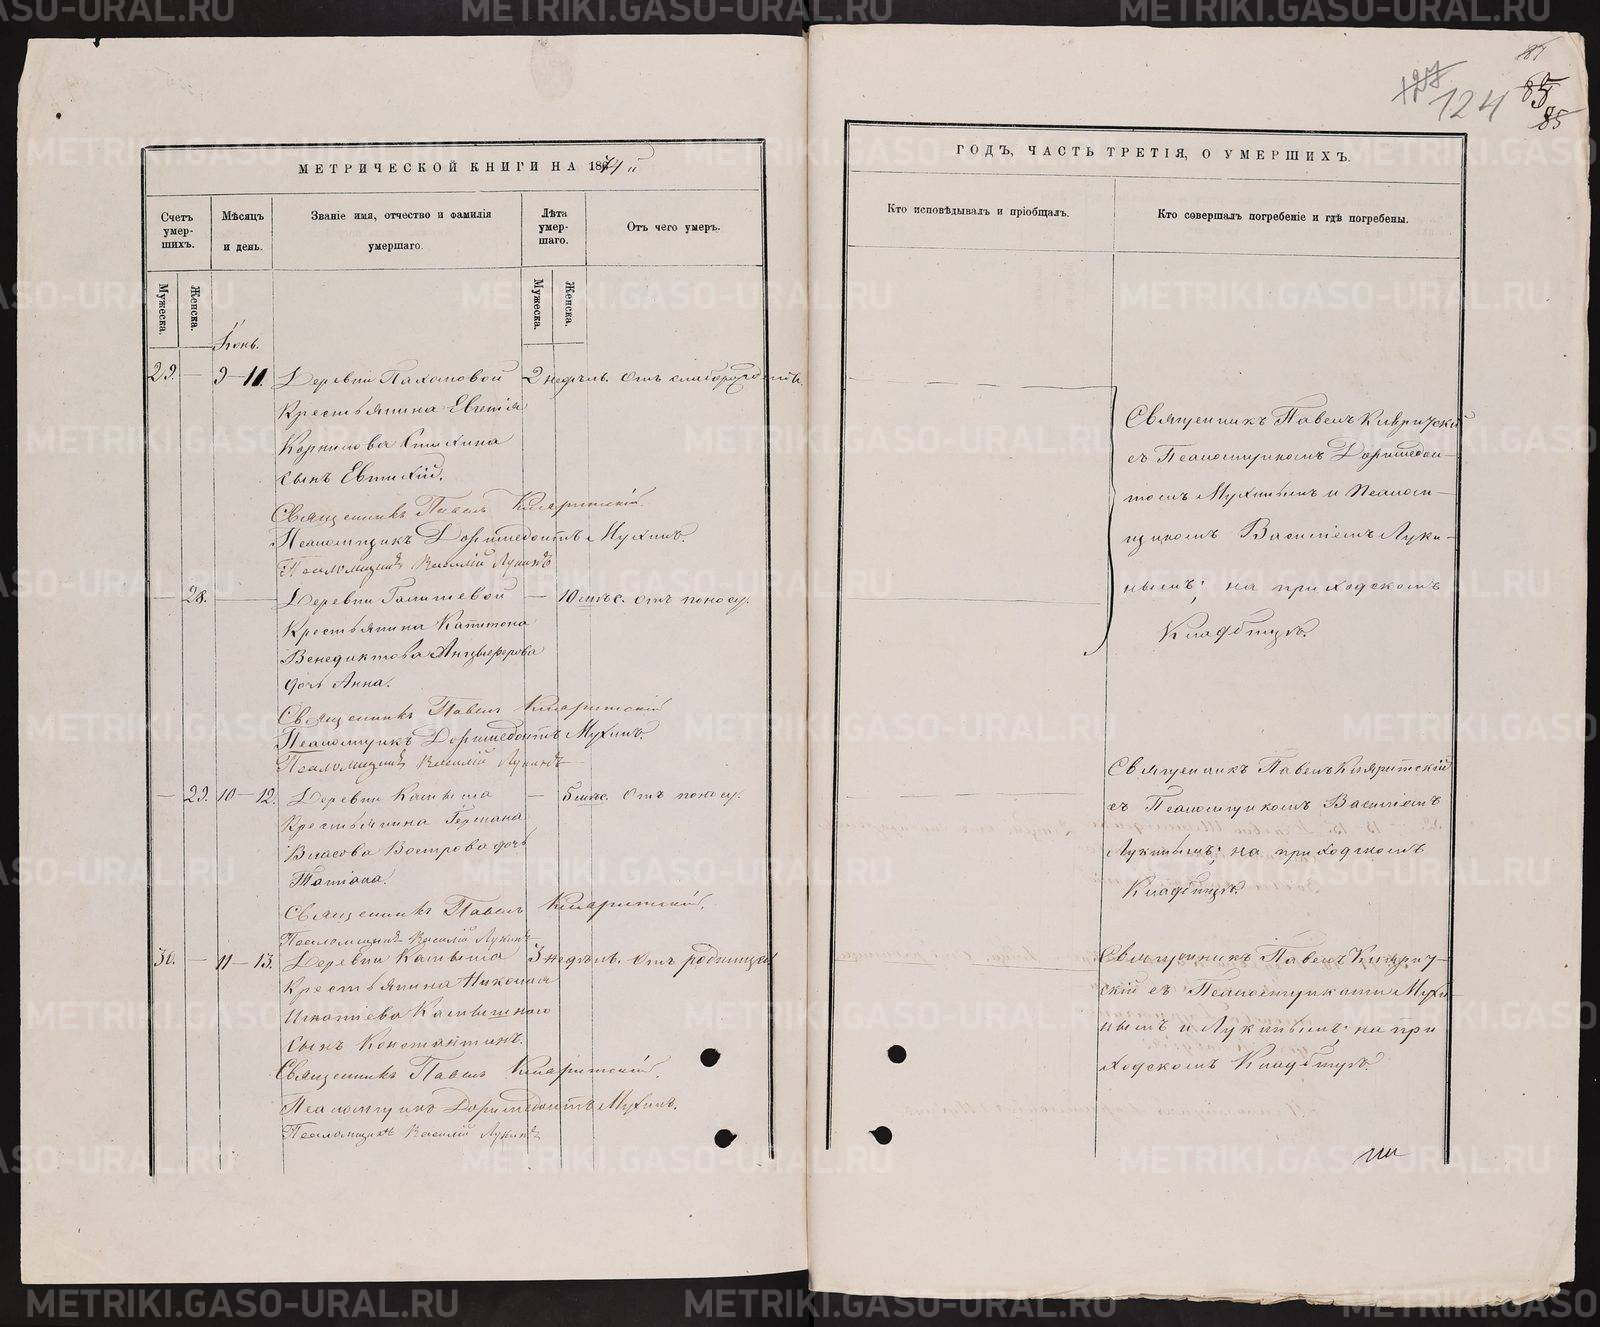 МЕТРИЧЕСКОЙ КНИГИ НА 1871 й
Счетъ умер-шихъ.
Мѣсяцъ и день.
Званіе имя, отчество и фамилія умершаго.
Лѣта умер-шаго.
Отъ чего умеръ.
Мужеска.
Женска.
Мужеска.
Женска.
Іюнь.
29. — 9—11. Деревни Пахомовой 2 недѣль. Отъ слаборожденія.
Крестьянина Евгенія
Корнилова
сынъ Евтихій.
Священникъ Павелъ
Псаломщикъ Доримедонтъ Мухинъ.
Псаломщикъ Василій Лукинъ
— 28. — Деревни — 10 мѣс. Отъ поносу.
Крестьянина Капитона
Венедиктова Анцыферова
дочь Анна.
Священникъ Павелъ
Псаломщикъ Доримедонтъ Мухинъ.
Псаломщикъ Василій Лукинъ
— 29. 10—12. Деревни Камыша — 5 мѣс. Отъ поносу.
Крестьянина Германа
Власова Вострова дочь
Татіана.
Священникъ Павелъ
Псаломщикъ Василій Лукинъ
30. — 11—13. Деревни Камыша 3 недѣль. Отъ родимца
Крестьянина Николая
Игнатіева
сынъ Константинъ.
Священникъ Павелъ
Псаломщикъ Доримедонтъ Мухинъ.
Псаломщикъ Василій Лукинъ
124
85
ГОДЪ, ЧАСТЬ ТРЕТІЯ, О УМЕРШИХЪ.
Кто исповѣдывалъ и пріобщалъ.
Кто совершалъ погребеніе и гдѣ погребены.
Священникъ Павелъ
съ Псаломщикомъ Доримедон-
томъ Мухинымъ и Псалом-
щикомъ Василіемъ Луки-
нымъ; на приходскомъ
Кладбищѣ.
Священникъ Павелъ
съ Псаломщикомъ Василіемъ
Лукинымъ; на приходскомъ
Кладбищѣ.
Священникъ Павелъ
съ Псаломщиками Мухи-
нымъ и Лукинымъ; на при
ходскомъ Кладбищѣ.
METRIKI.GASO-URAL.RU